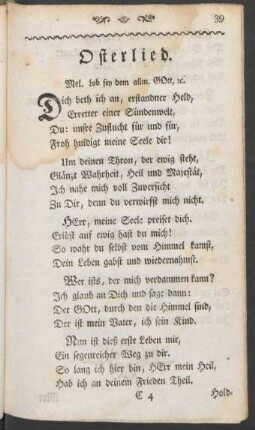 39
Osterlied.
Mel. lob sey dem allm. GOtt, ꝛc.
Dich beth ich an, erstandner Held,
Erretter einer Sündenwelt,
Du: unsre Zuflucht für und für,
Froh huldigt meine Seele dir!
Um deinen Thron, der ewig steht,
Glänzt Wahrheit, Heil und Majestät,
Ich nahe mich voll Zuversicht
Zu Dir, denn du verwirfst mich nicht.
HErr, meine Seele preiset dich.
Erlöst auf ewig hast du mich!
So wahr du selbst vom Himmel kamst,
Dein Leben gabst und wiedernahmst.
Wer ists, der mich verdammen kann?
Ich glaub an Dich und sage dann:
Der GOtt, durch den die Himmel sind,
Der ist mein Vater, ich sein Kind.
Nun ist dieß erste Leben mir,
Ein segenreicher Weg zu dir.
So lang ich hier bin, HErr mein Heil,
Hab ich an deinem Frieden Theil.
C 4 Hold-